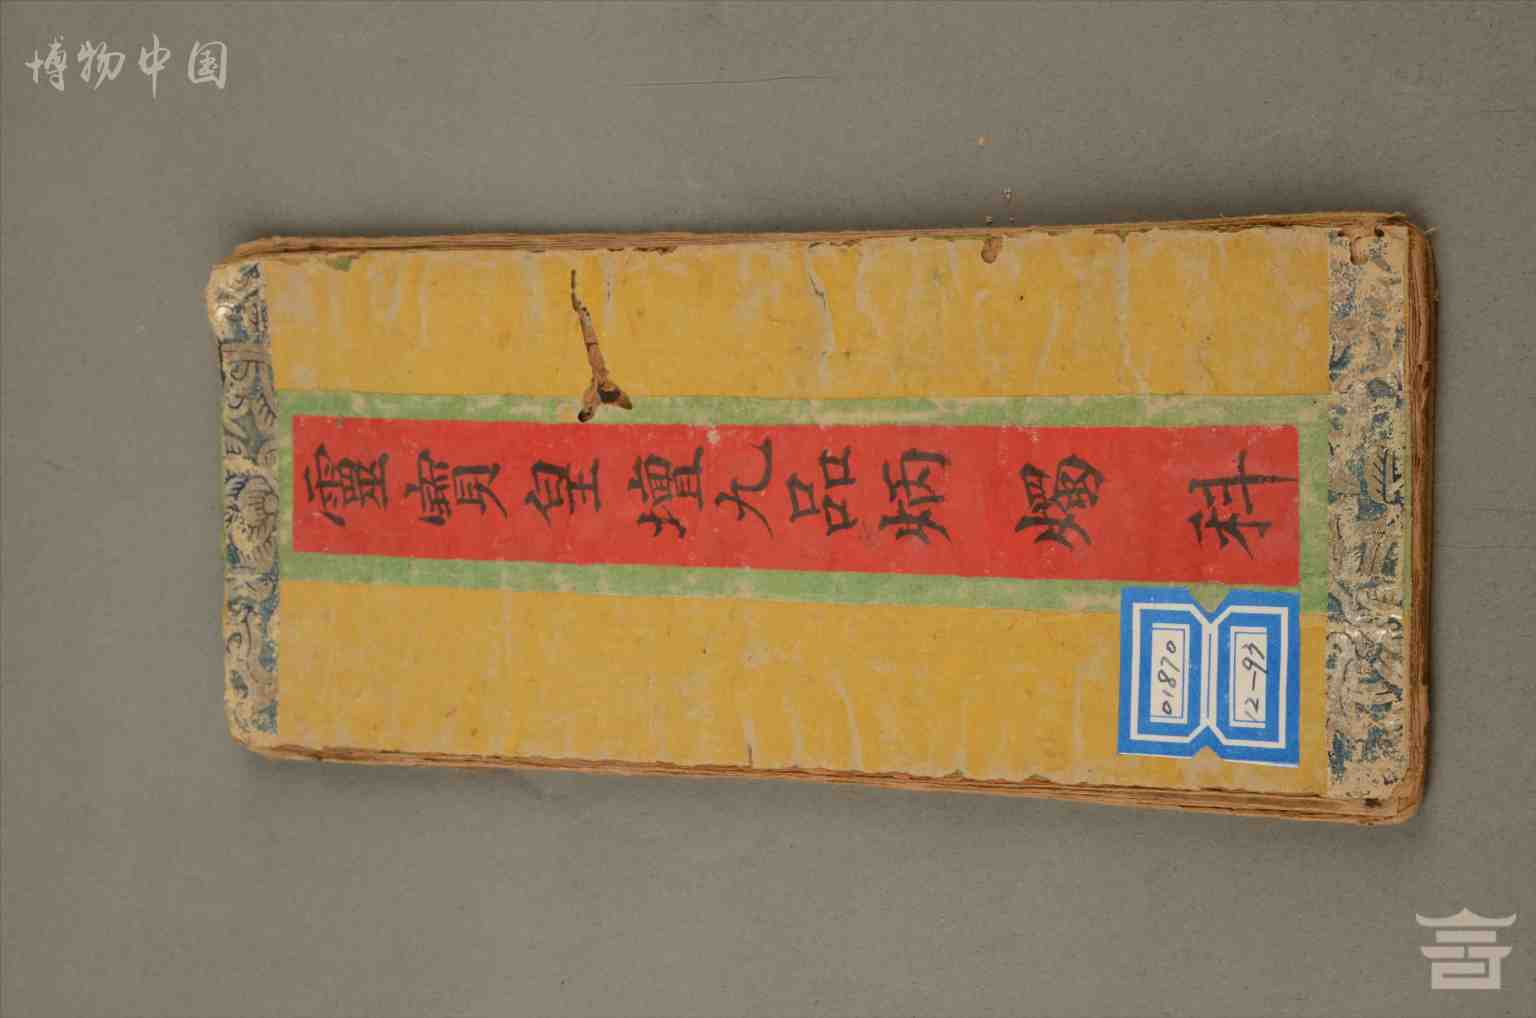 博物中国
靈寳皇壇九品炳燭科
01870
12-93